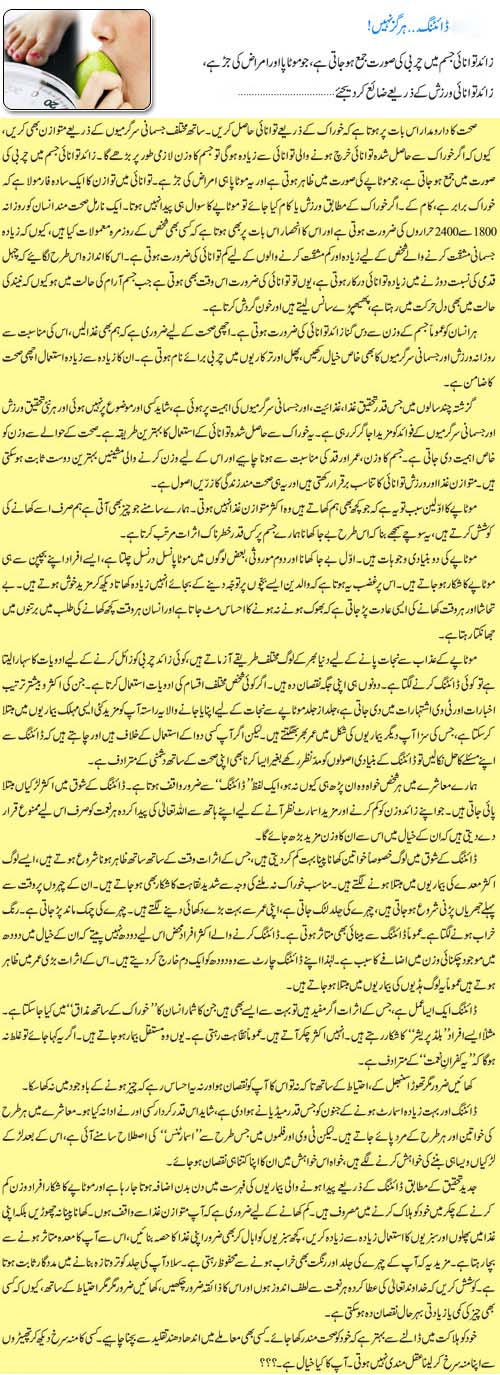 ڈائٹنگ... ہرگز نہیں!
زائد توانائی جسم میں چربی کی صورت جمع ہوجاتی ہے، جو موٹاپا اور امراض کی جڑ ہے،
زائد توانائی ورزش کے ذریعے ضائع کر دیجئے
صحت کا دارومدار اس بات پر ہوتا ہے کہ خوراک کے ذریعے توانائی حاصل کریں۔ ساتھ مختلف جسمانی سرگرمیوں کے ذریعے متوازن بھی کریں،
کیوں کہ اگر خوراک سے حاصل شدہ توانائی خرچ ہونے والی توانائی سے زیادہ ہوگی تو جسم کا وزن لازمی طور پر بڑھے گا۔ زائد توانائی جسم میں چربی کی
صورت میں جمع ہوجاتی ہے، جو موٹاپے کی صورت میں ظاہر ہوتی ہے اور یہ موٹاپا ہی امراض کی جڑ ہے۔ توانائی میں توازن کا ایک سادہ فارمولا ہے کہ
خوراک برابر ہے، کام کے۔ اگر خوراک کے مطابق ورزش یا کام کیا جائے تو موٹاپے کا سوال ہی پیدا نہیں ہوتا۔ ایک نارمل صحت مند انسان کو روزانہ
1800 سے 2400 حراروں کی ضرورت ہوتی ہے اور اس کا انحصار اس بات پر بھی ہوتا ہے کہ کسی بھی شخص کے روزمرہ معمولات کیا ہیں، کیوں کہ زیادہ
جسمانی مشقت کرنے والے شخص کے لیے زیادہ اور کم مشقت کرنے والوں کے لیے کم توانائی کی ضرورت ہوتی ہے۔ اس کا اندازہ اس طرح لگائیے کہ چہل
قدمی کی نسبت دوڑنے میں زیادہ توانائی درکار ہوتی ہے، یوں تو توانائی کی ضرورت اس وقت بھی ہوتی ہے جب جسم آرام کی حالت میں ہو کیوں کہ نیند کی
حالت میں بھی دل حرکت میں رہتا ہے، پھیپھڑے سانس لیتے ہیں اور خون گردش کرتا ہے۔
ہر انسان کو عموماً جسم کے وزن سے دس گنا زائد توانائی کی ضرورت ہوتی ہے۔ اچھی صحت کے لیے ضروری ہے کہ ہم بھی غذا لیں، اس کی مناسبت سے
روزانہ ورزش اور جسمانی سرگرمیوں کا بھی خاص خیال رکھیں، پھل اور ترکاریوں میں چربی برائے نام ہوتی ہے۔ ان کا زیادہ سے زیادہ استعمال اچھی صحت
کا ضامن ہے۔
گزشتہ چند سالوں میں جس قدر تحقیق غذا، غذائیت، اور جسمانی سرگرمیوں کی اہمیت پر ہوئی ہے، شاید کسی اور موضوع پر نہیں ہوئی اور ہر نئی تحقیق ورزش
اور جسمانی سرگرمیوں کے فوائد کو مزید اجاگر کر رہی ہے۔ یہ خوراک سے حاصل شدہ توانائی کے استعمال کا بہترین طریقہ ہے۔ صحت کے حوالے سے وزن کو
خاص اہمیت دی جاتی ہے۔ جسم کا وزن، عمر اور قد کی مناسبت سے ہونا چاہیے اور اس کے لیے وزن کرنے والی مشینیں بہترین دوست ثابت ہوسکتی
ہیں۔ متوازن غذا اور ورزش توانائی کا تناسب برقرار رکھتی ہیں اور یہی صحت مند زندگی کا زرّیں اصول ہے۔
موٹاپے کا اوّلین سبب تو یہ ہے کہ جو کچھ بھی ہم کھاتے ہیں وہ اکثر متوازن غذا نہیں ہوتی۔ ہمارے سامنے جو چیز بھی آتی ہے ہم صرف اسے کھانے کی
کوشش کرتے ہیں، یہ سوچے سمجھے بنا کہ اس طرح بے جا کھانا ہمارے جسم پر کس قدر خطرناک اثرات مرتب کرتا ہے۔
موٹاپے کی دو بنیادی وجوہات ہیں۔ اوّل بے جا کھانا اور دوم موروثی، بعض لوگوں میں موٹاپا نسل درنسل چلتا ہے، ایسے افراد اپنے بچپن سے ہی
موٹاپے کا شکار ہوجاتے ہیں۔ اس پر غضب یہ ہوتا ہے کہ والدین ایسے بچوں پر توجہ دینے کے بجائے انہیں زیادہ کھاتا دیکھ کر مزید خوش ہوتے ہیں۔ بے
تحاشا اور ہر وقت کھانے کی ایسی عادت پڑ جاتی ہے کہ بھوک ہونے نہ ہونے کا احساس مٹ جاتا ہے اور انسان ہر وقت کچھ کھانے کی طلب میں برتنوں میں
جھانکتا رہتا ہے۔
موٹاپے کے عذاب سے نجات پانے کے لیے دنیا بھر کے لوگ مختلف طریقے آزماتے ہیں، کوئی زائد چربی کو زائل کرنے کے لیے ادویات کا سہارا لیتا
ہے تو کوئی ڈائٹنگ کرنے لگتا ہے۔ دونوں ہی اپنی جگہ نقصان دہ ہیں۔ اگر کوئی شخص مختلف اقسام کی ادویات استعمال کرتا ہے۔ جن کی اکثر و بیشتر ترتیب
اخبارات اور ٹی وی اشتہارات میں دی جاتی ہے، جلد از جلد موٹاپے سے نجات کے لیے اپنایا جانے والا یہ راستہ آپ کو مزید کئی ایسی مہلک بیماریوں میں مبتلا
کرسکتا ہے، جس کی سزا آپ دیگر بیماریوں کی شکل میں عمر بھر بھگتتے ہیں۔ لیکن اگر آپ کسی دوا کے استعمال کے خلاف ہیں اور چاہتے ہیں کہ ڈائٹنگ سے
اپنے مسئلے کا حل نکالیں تو ڈائٹنگ کے بنیادی اصولوں کو مدنظر رکھے بغیر ایسا کرنا بھی اپنی صحت کے ساتھ دشمنی کے مترادف ہے۔
ہمارے معاشرے میں ہر شخص خواہ وہ ان پڑھ ہی کیوں نہ ہو، ایک لفظ ”ڈائٹنگ“ سے ضرور واقف ہوتا ہے۔ ڈائٹنگ کے شوق میں اکثر لڑکیاں مبتلا
پائی جاتی ہیں۔ جو اپنے زائد وزن کو کم کرنے اور مزید اسمارٹ نظر آنے کے لیے اپنے ہاتھ سے اللہ تعالی کی پیدا کردہ ہر نعمت کو صرف اس لیے ممنوع قرار
دے دیتی ہیں کہ ان کے خیال میں اس سے ان کا وزن مزید بڑھ جائے گا۔
ڈائٹنگ کے شوق میں لوگ خصوصاً خواتین کھانا پینا بہت کم کر دیتی ہیں، جس کے اثرات وقت کے ساتھ ساتھ ظاہر ہونا شروع ہوتے ہیں، ایسے لوگ
اکثر معدے کی بیماریوں میں مبتلا ہونے لگتے ہیں۔ مناسب خوراک نہ ملنے کی وجہ سے شدید نقاہت کا شکار بھی ہوجاتے ہیں۔ ان کے چہروں پر وقت سے
پہلے جھریاں پڑنی شروع ہوجاتی ہیں، چہرے کی جلد لٹک جاتی ہے، اپنی عمر سے بہت بڑے دکھائی دینے لگتے ہیں۔ چہرے کی چمک ماند پڑجاتی ہے۔ رنگ
خراب ہونے لگتا ہے۔ عموماً ڈائٹنگ سے بینائی بھی متاثر ہوتی ہے۔ ڈائٹنگ کرنے والے اکثر افراد محض اس لیے دودھ نہیں پیتے کہ ان کے خیال میں دودھ
میں موجود چکنائی وزن میں اضافے کا سبب ہے۔ لہٰذا اپنے ڈائٹنگ چارٹ سے وہ دودھ کو ایک دم خارج کر دیتے ہیں۔ اس کے اثرات بڑی عمر میں ظاہر
ہوتے ہیں عموماً یہ لوگ ہڈیوں کی بیماریوں میں مبتلا ہوجاتے ہیں۔
ڈائٹنگ ایک ایسا عمل ہے، جس کے اثرات اگر مفید ہیں تو بہت سے ایسے بھی ہیں جن کا شمار انسان کا ”خوراک کے ساتھ مذاق“ میں کیا جاسکتا ہے۔
مثلاً ایسے افراد ”بلڈ پریشر“ کا شکار رہتے ہیں۔ انہیں اکثر چکر آتے ہیں۔ عموماً نقاہت رہتی ہے۔ یوں وہ مستقل بیمار ہوجاتے ہیں۔ اگر یہ کہا جائے تو غلط نہ
ہوگا کہ ”یہ کفران نعمت“ کے مترادف ہے۔
کھائیں ضرور مگر تھوڑا سنبھل کے، احتیاط کے ساتھ تاکہ نہ تو اس کا آپ کو نقصان ہو اور نہ یہ احساس رہے کہ چیز ہونے کے باوجود میں نہ کھا سکا۔
ڈائٹنگ اور بہت زیادہ اسمارٹ ہونے کے جنون کو جس قدر میڈیا نے ہوا دی ہے، شاید اس قدر کردار کسی اور نے ادا نہ کیا ہو۔ معاشرے میں ہر طرح
کی خواتین اور ہر طرح کے مرد پائے جاتے ہیں۔ لیکن ٹی وی اور فلموں میں جس طرح سے ”اسمارٹنس“ کی اصطلاح سامنے آئی ہے، اس کے بعد لڑکے
لڑکیاں ویسا ہی بننے کی خواہش کرنے لگے ہیں، خواہ اس خواہش میں ان کا اپنا کتنا ہی نقصان ہو جائے۔
جدید تحقیق کے مطابق ڈائٹنگ کے ذریعے پیدا ہونے والی بیماریوں کی فہرست میں دن بدن اضافہ ہوتا جا رہا ہے اور موٹاپے کا شکار افراد وزن کم
کرنے کے چکر میں خود کو ہلاک کرنے میں مصروف ہیں۔ کم کھانے کے لیے ضروری ہے کہ آپ متوازن غذا سے واقف ہوں۔ کھانا پینا نہ چھوڑیں بلکہ اپنی
غذا میں پھلوں اور سبزیوں کا استعمال زیادہ سے زیادہ کریں، کچھ سبزیوں کو ابال کر بھی ضرور اپنی غذا کا حصہ بنائیں، اس سے آپ کا معدہ متاثر ہونے سے
بچا رہتا ہے۔ مزید یہ کہ آپ کے چہرے کی جلد اور رنگت بھی خراب ہونے سے محفوظ رہتی ہے۔ سلاد آپ کی جلد کو تروتازہ بنانے میں مددگار ثابت ہوتا
ہے۔ کوشش کریں کہ خداوند تعالی کی عطا کردہ ہر نعمت سے لطف اندوز ہوں اور اس کا ذائقہ ضرور چکھیں، کھائیں ضرور مگر احتیاط کے ساتھ، کیوں کہ کسی
بھی چیز کی کمی یا زیادتی بہرحال نقصان دہ ہوسکتی ہے۔
خود کو ہلاکت میں ڈالنے سے بہتر ہے کہ خود کو صحت مند رکھا جائے۔ کسی بھی معاملے میں اندھا دھند تقلید سے بچنا چاہیے۔ کسی کا منہ سرخ دیکھ کر تھپیڑوں
سے اپنا منہ سرخ کر لینا عقل مندی نہیں ہوتی۔ آپ کا کیا خیال ہے۔؟؟؟